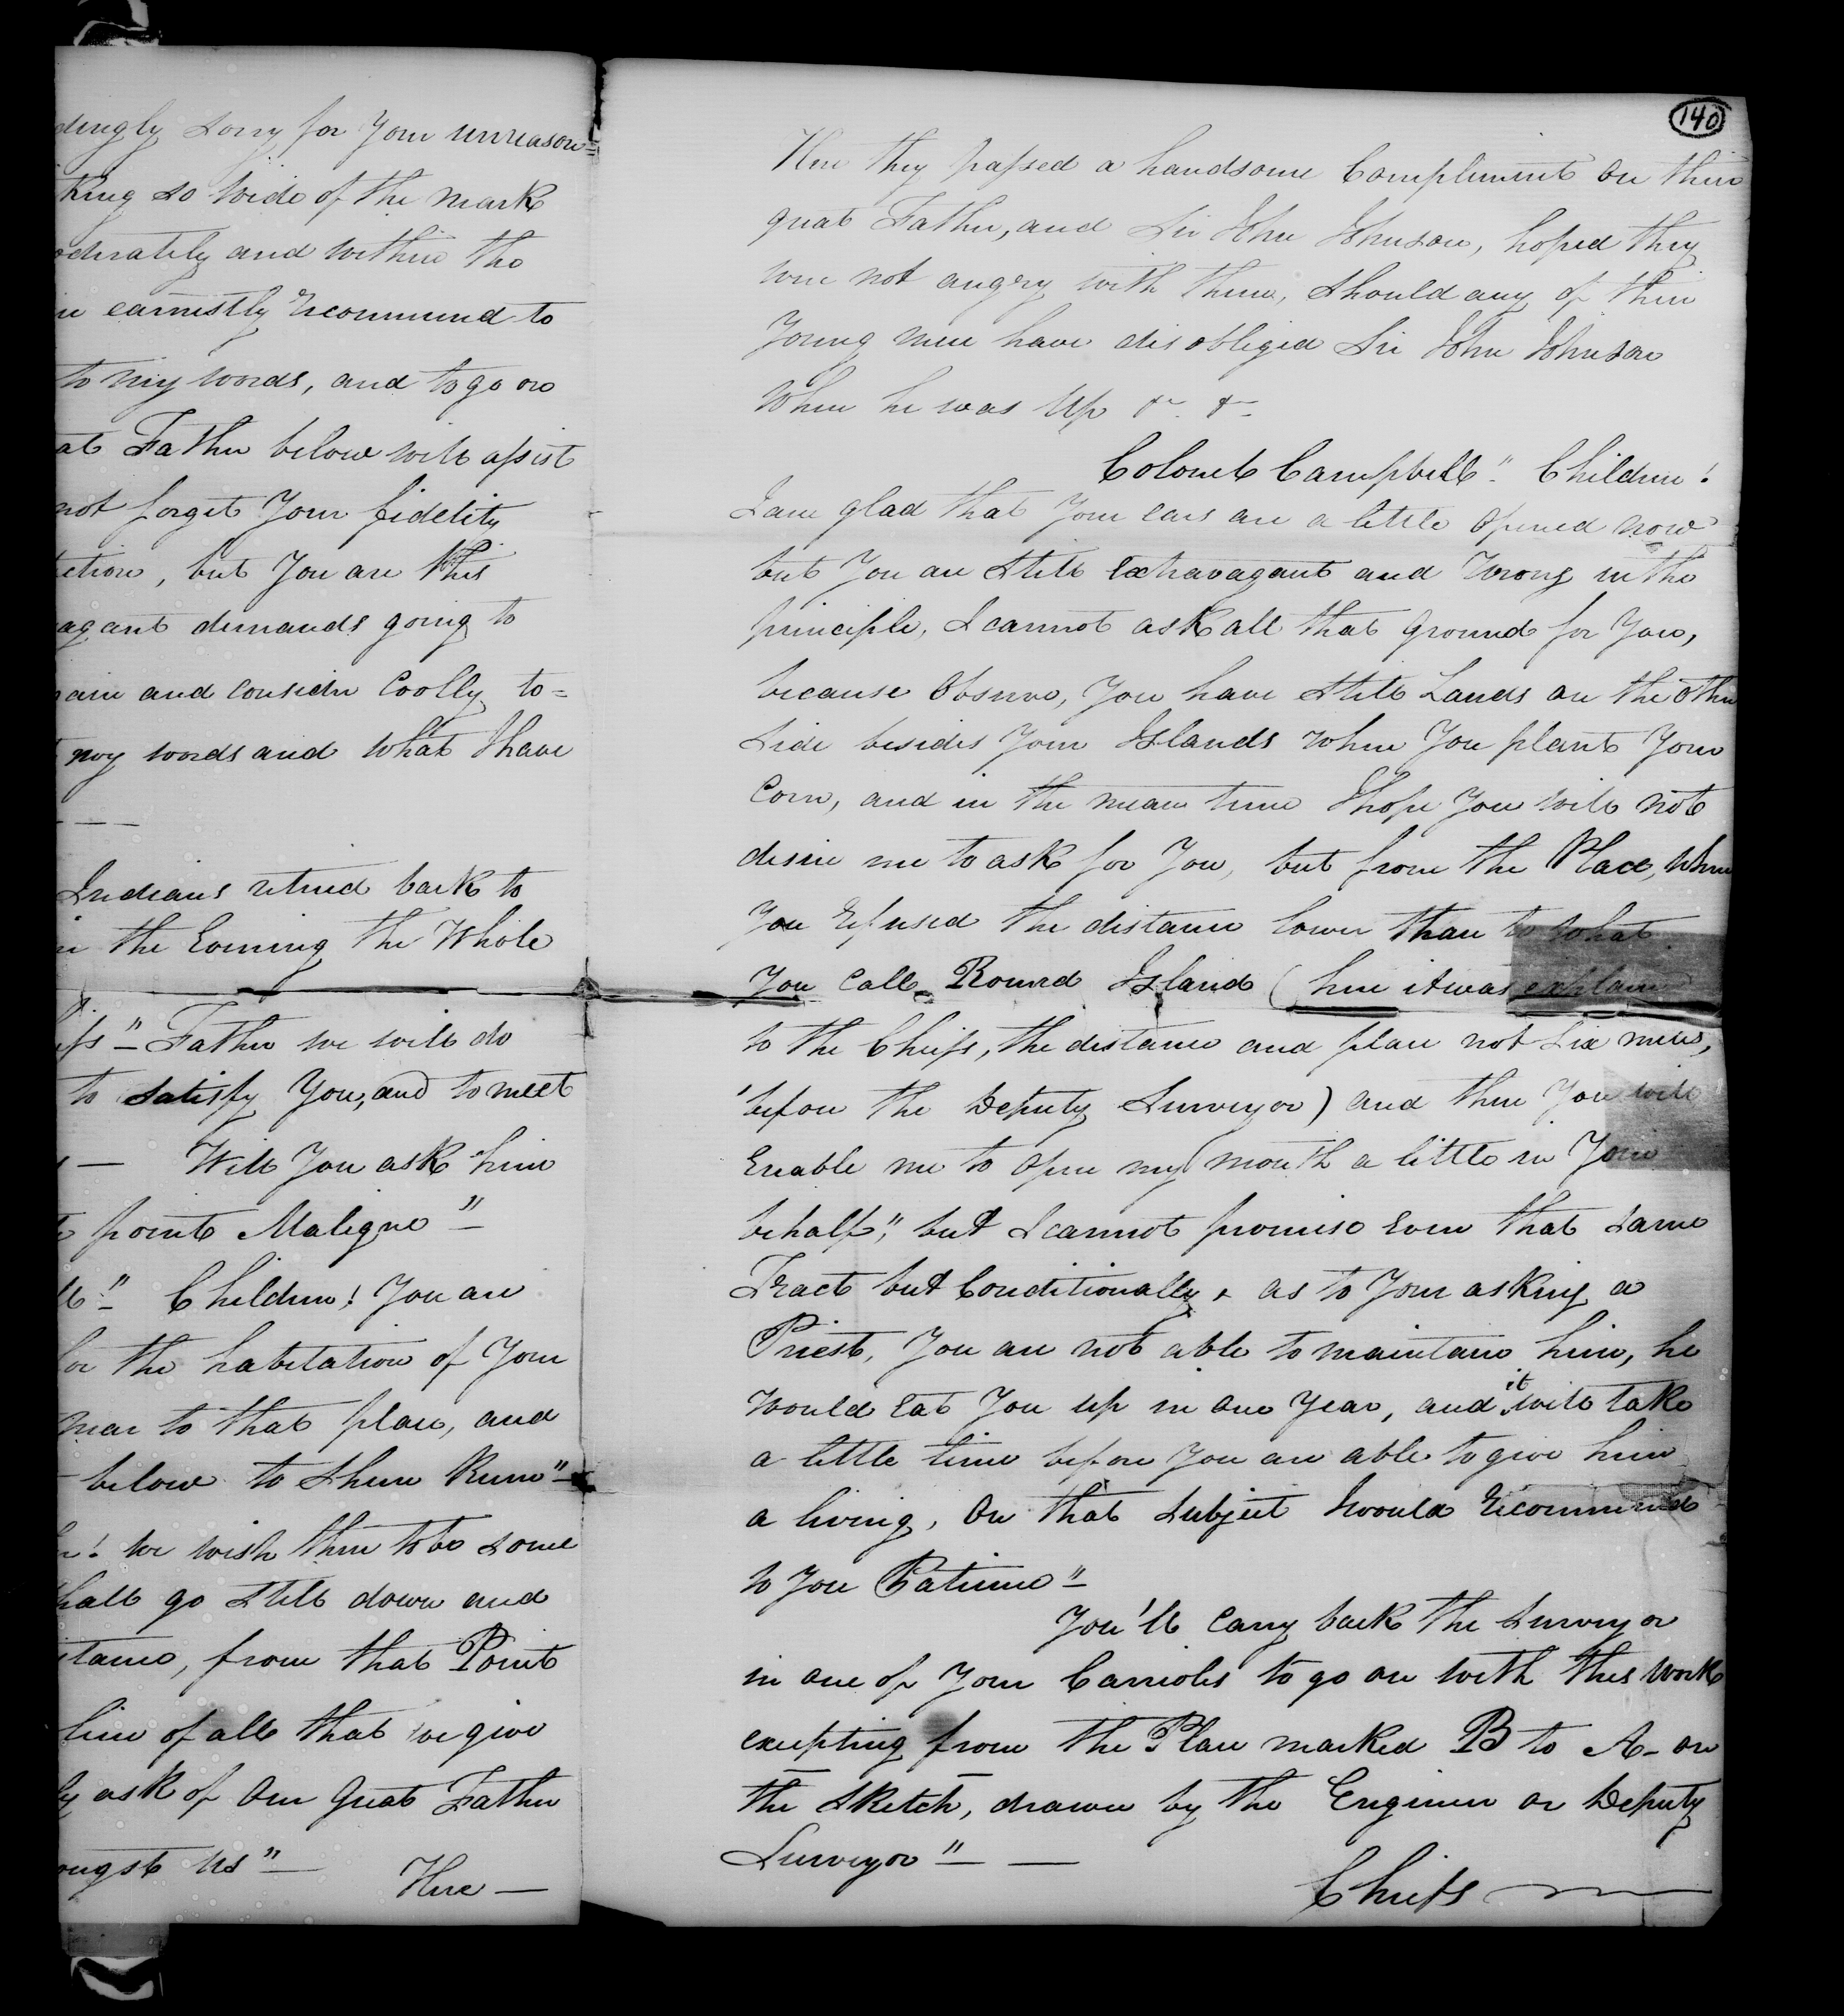 dingly sorry for Your unreason=
king so wide of the mark
oderately and within the
in earnestly Recommend to
to my words, and to go on
at Father below will assist
not forget Your fidelity
ction, but You are this
agant demands going to
ain and consider Coolly to=
my words and what I have
Indians retired back to
in the Evening the Whole
efs" Father we will do
to satisfy You, and to meet
Will You ask him
point Maligne"
ll" Children! You are
for the habitation of Your
near to that place, and
below to them Rum"
r! We wish them to be some
hall go still down and
stance, from that Point
line of all that we give
ly ask of Our Great Father
ongst us"
Here
140
Here they passed a handsome Compliment on their
great Father, and Sir John Johnson, hoped they
were not angry with them, should any of their
Young men have disobliged Sir John Johnson
when he was Up &c. &c
Colonel Campbell" Children!
I am glad that Your ears are a little opened now
but You are still extravagant and Wrong in the
principle, I cannot ask all that Ground for You,
because Observe, You have still Lands on the Other
Side besides Your Islands where You plant Your
Corn, and in the mean time I hope You will not
desire me to ask for You, but from the Place, where
You Refused the distance lower than to what
You call Round Island (here it was explain
to the Chiefs, the distance and place not Six miles,
before the Deputy Surveyor) and then You will
Enable me to Open my mouth a little in Your
behalf", but I cannot promise Even that same
Tract but Conditionally & as to Your asking a
Priest, You are not able to maintain him, he
would Eat You up in One Year, and it will take
a little time before You are able to give him
a living, On that Subject I would Recommend
to You Patience"
You'll Carry back the Surveyor
in one of Your Carrioles to go on with this Work
excepting from the Place marked B to A- on
the Sketch, drawn by the Engineer or Deputy
Surveyor"
Chiefs